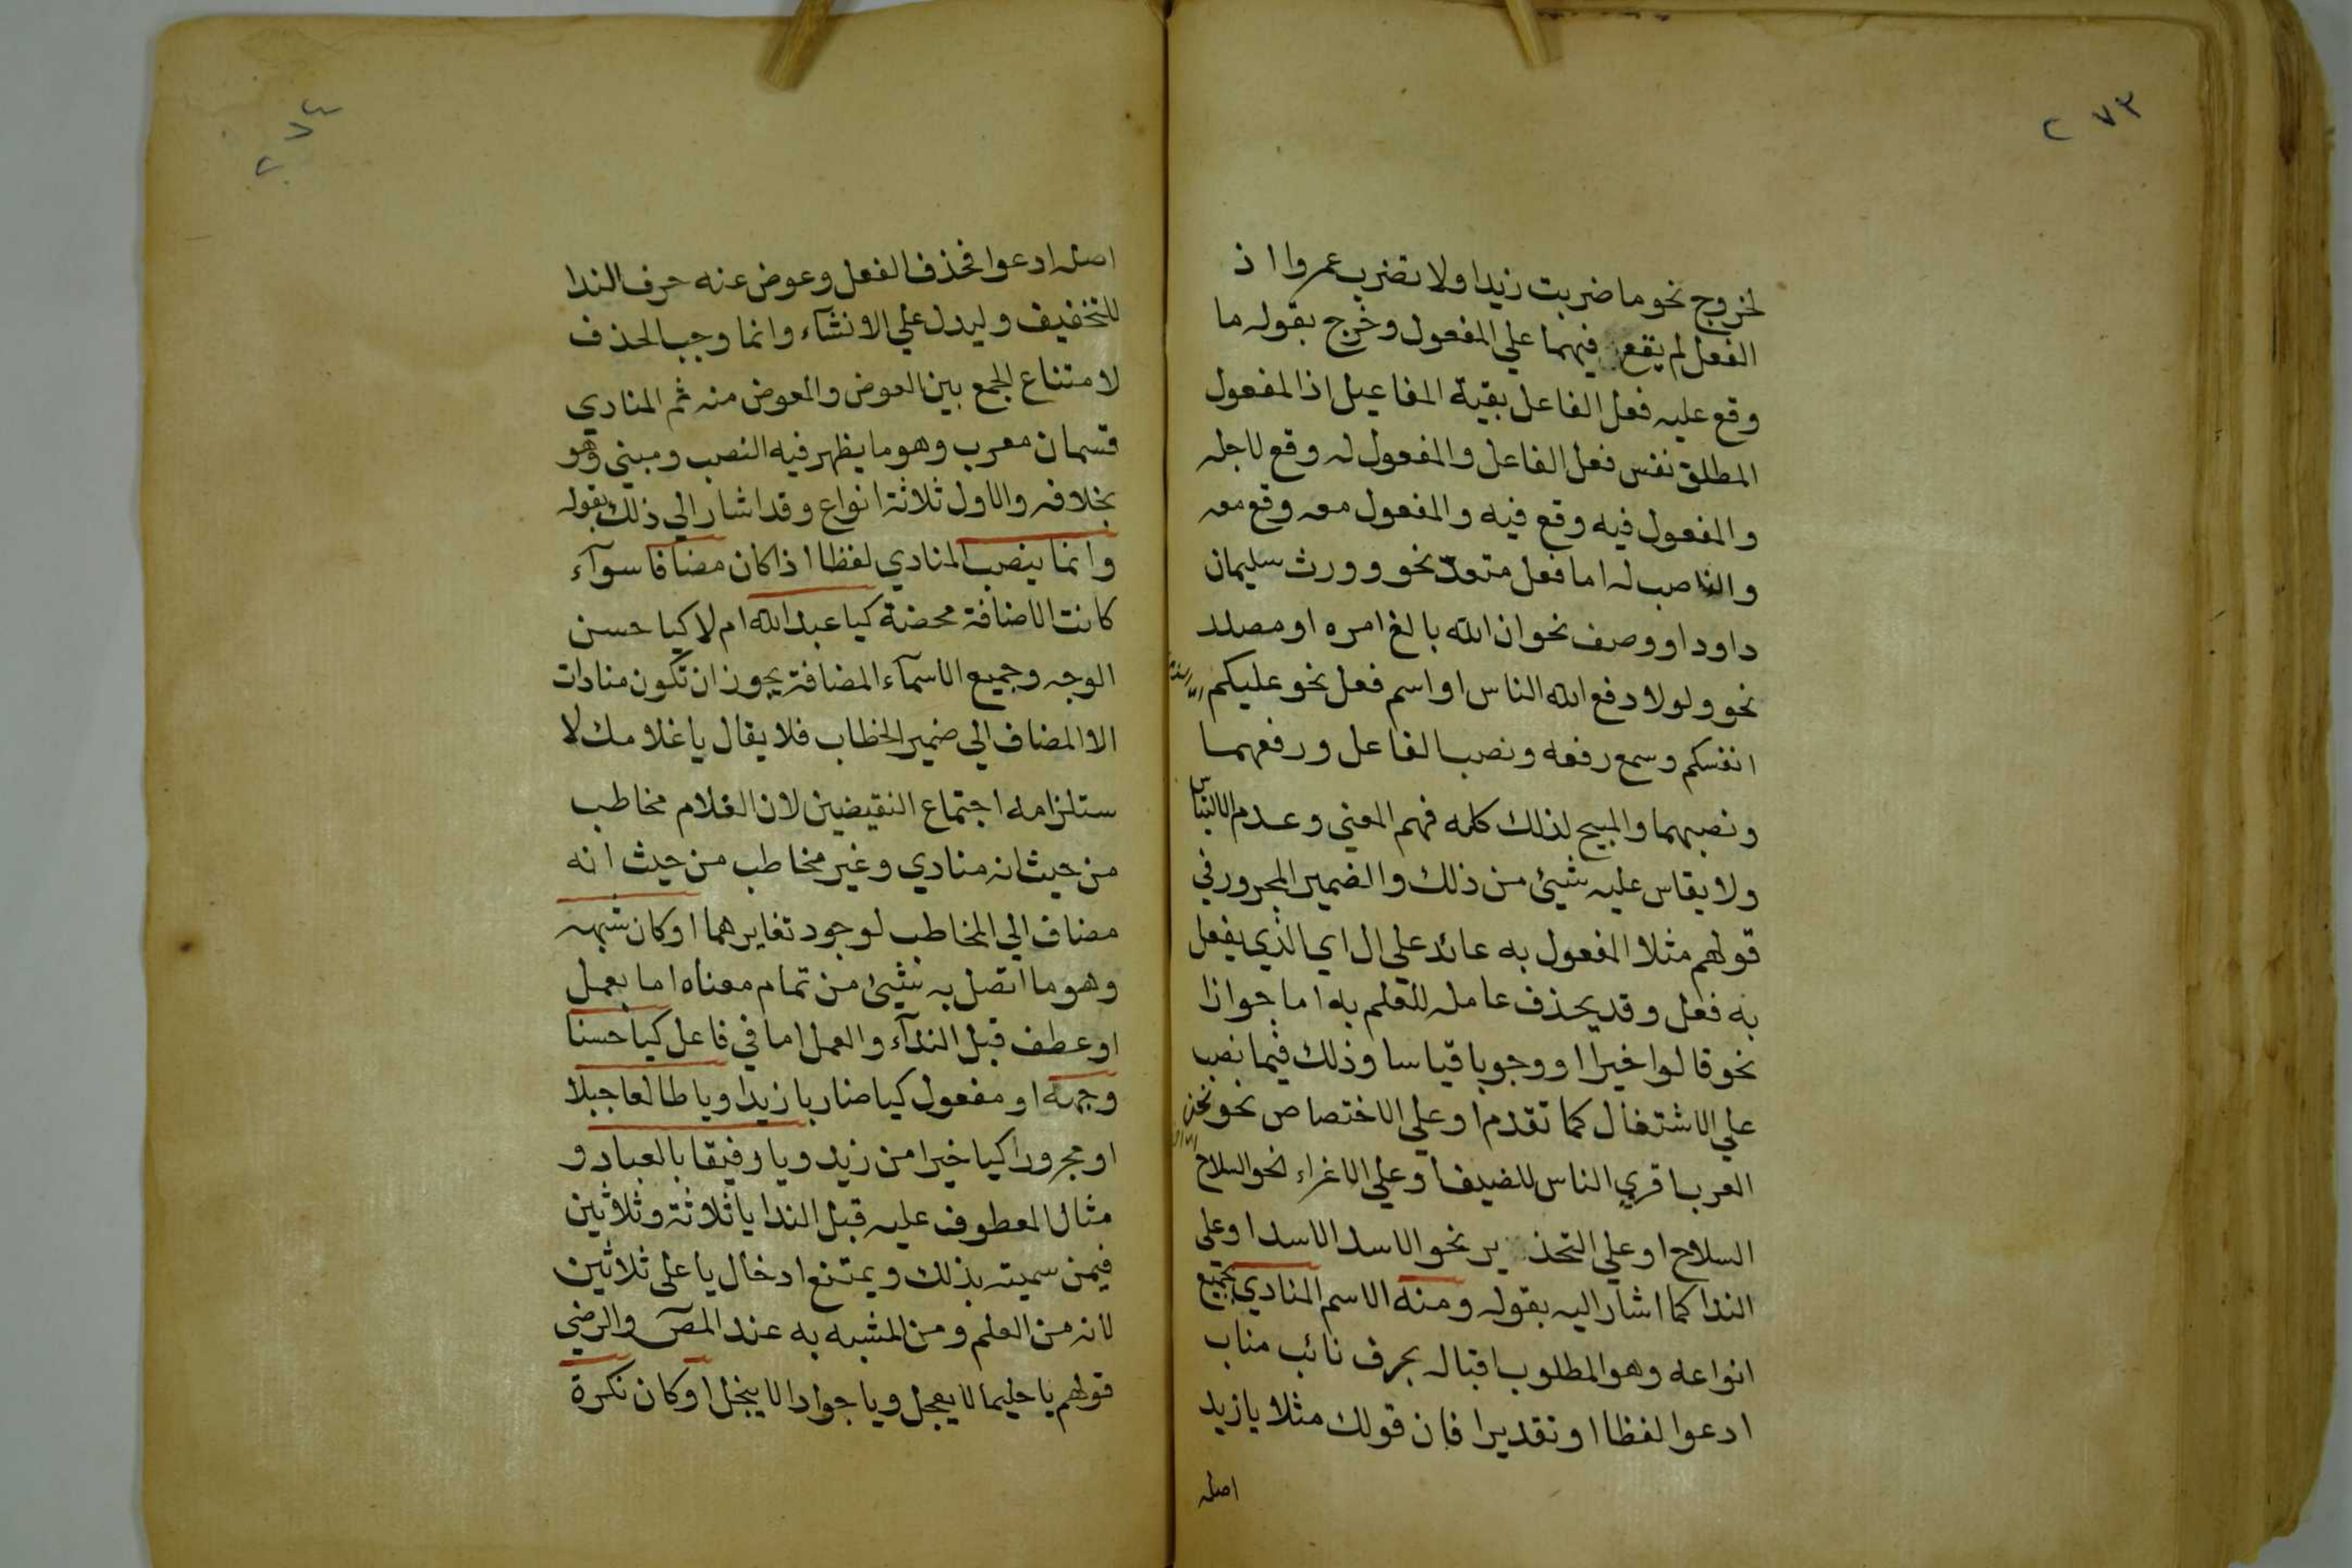 ٢٧٣
لخروج نحو ما ضربت زيدا ولا تضرب عمروا اذ
الفعل لم يقع فيهما علي المفعول وخرج بقوله ما
وقع عليه فعل الفاعل بقية المفاعيل اذ المفعول
المطلق نفس فعل الفاعل والمفعول له وقع لاجله
والمفعول فيه وقع فيه والمفعول معه وقع معه
والناصب له اما فعل متعدّ نحو وورث سليمان
داود او وصف نحو ان الله بالغ امره او مصدر
نحو ولولا دفع الله الناس او اسم فعل نحو عليكم
انفسكم وسمع رفعه ونصب الفاعل ورفعهما
ونصبهما والمبيح لذلك كله فهم المعني وعدم الالتباس
ولا يقاس عليه شيئ من ذلك والضمير المجرور في
قولهم مثلا المفعول به عائد علي ال اي الذي يفعل
به فعل وقد يحذف عامله للعلم به اما جوازا
نحو قالوا خيرا او وجوبا قياسا وذلك فيما نصب
علي الاشتغال كما تقدم او علي الاختصاص نحو نحن
العرب اقري الناس للضيف او علي الاغراء نحو السلاح
السلاح او علي التحذير نحو الاسد الاسد او علي
الندا كما اشار اليه بقوله ومنه الاسم المنادي بجميع
انواعه وهو المطلوب اقباله بحرف نائب مناب
ادعوا لفظا او تقديرا فان قولك مثلا يا زيد
اصله
٢٧٤
اصله ادعوا فحذف الفعل وعوض عنه حرف الندا
للتخفيف وليدل علي الانشاء وانما وجب الحذف
لامتناع الجمع بين العوض والمعوض منه ثم المنادي
قسمان معرب وهو ما يظهر فيه النصب ومبني وهو
بخلافه والاول ثلاثة انواع وقد اشار الي ذلك بقوله
وانما ينصب المنادي لفظا اذا كان مضافا سوآء
كانت الاضافة محضة كيا عبد الله ام لا كيا حسن
الوجه وجميع الاسمآء المضافة يجوز ان تكون منادات
الا المضاف الي ضمير الخطاب فلا يقال يا غلامك لا
ستلزامه اجتماع النقيضين لان الغلام مخاطب
من حيث انه منادي وغير مخاطب من حيث انه
مضاف الي المخاطب لوجود تغايرهما او كان شبهه
وهو ما اتصل به شيئ من تمام معناه اما بعمل
او عطف قبل الندآء والعمل اما في فاعل كيا حسنا
وجهه او مفعول كيا ضاربا زيدا ويا طالعا جبلا
او مجرورا كيا خيرا من زيد ويا رفيقا بالعباد و
مثال المعطوف عليه قبل الندا يا ثلاثة وثلاثين
فيمن سميته بذلك ويمتنع ادخال يا على ثلاثين
لانه من العلم ومن المشبه به عند المصَ والرضي
قولهم يا حليما لا يعجل ويا جوادا لا يبخل او كان نكرة